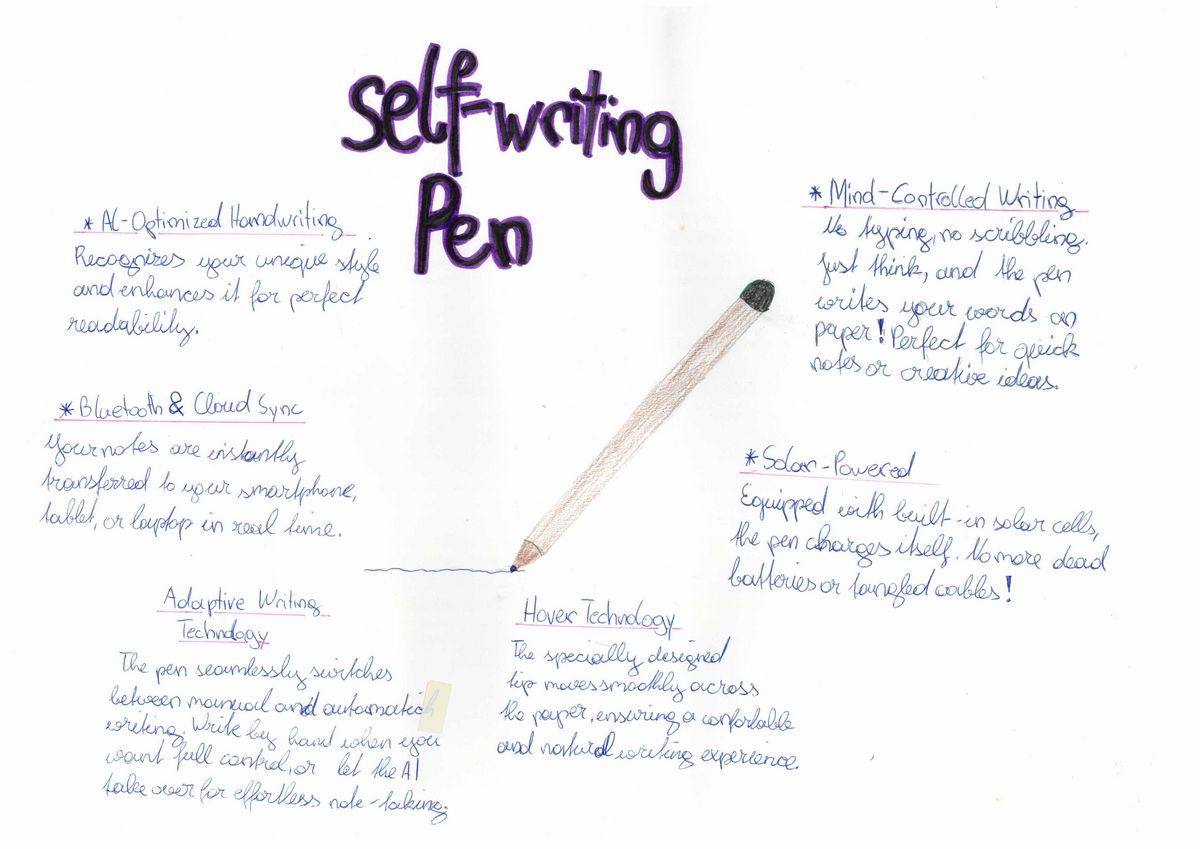 self-writing
Pen
* AI-Optimized Handwriting
Recognizes your unique style
and enhances it for perfect
readability.
* Bluetooth & Cloud Sync
Your notes are instantly
transferred to your smartphone,
tablet, or laptop in real time.
Adaptive Writing
Technology
The pen seamlessly switches
between manual and automatic
writing. Write by hand when you
want full control, or let the AI
take over for effortless note-taking.
Hover Technology
The specially designed
tip moves smoothly across
the paper, ensuring a comfortable
and natural writing experience.
* Mind-Controlled Writing
No typing, no scribbling.
Just think, and the pen
writes your words on
paper! Perfect for quick
notes or creative ideas.
* Solar-Powered
Equipped with built-in solar cells,
the pen charges itself. No more dead
batteries or tangled cables!